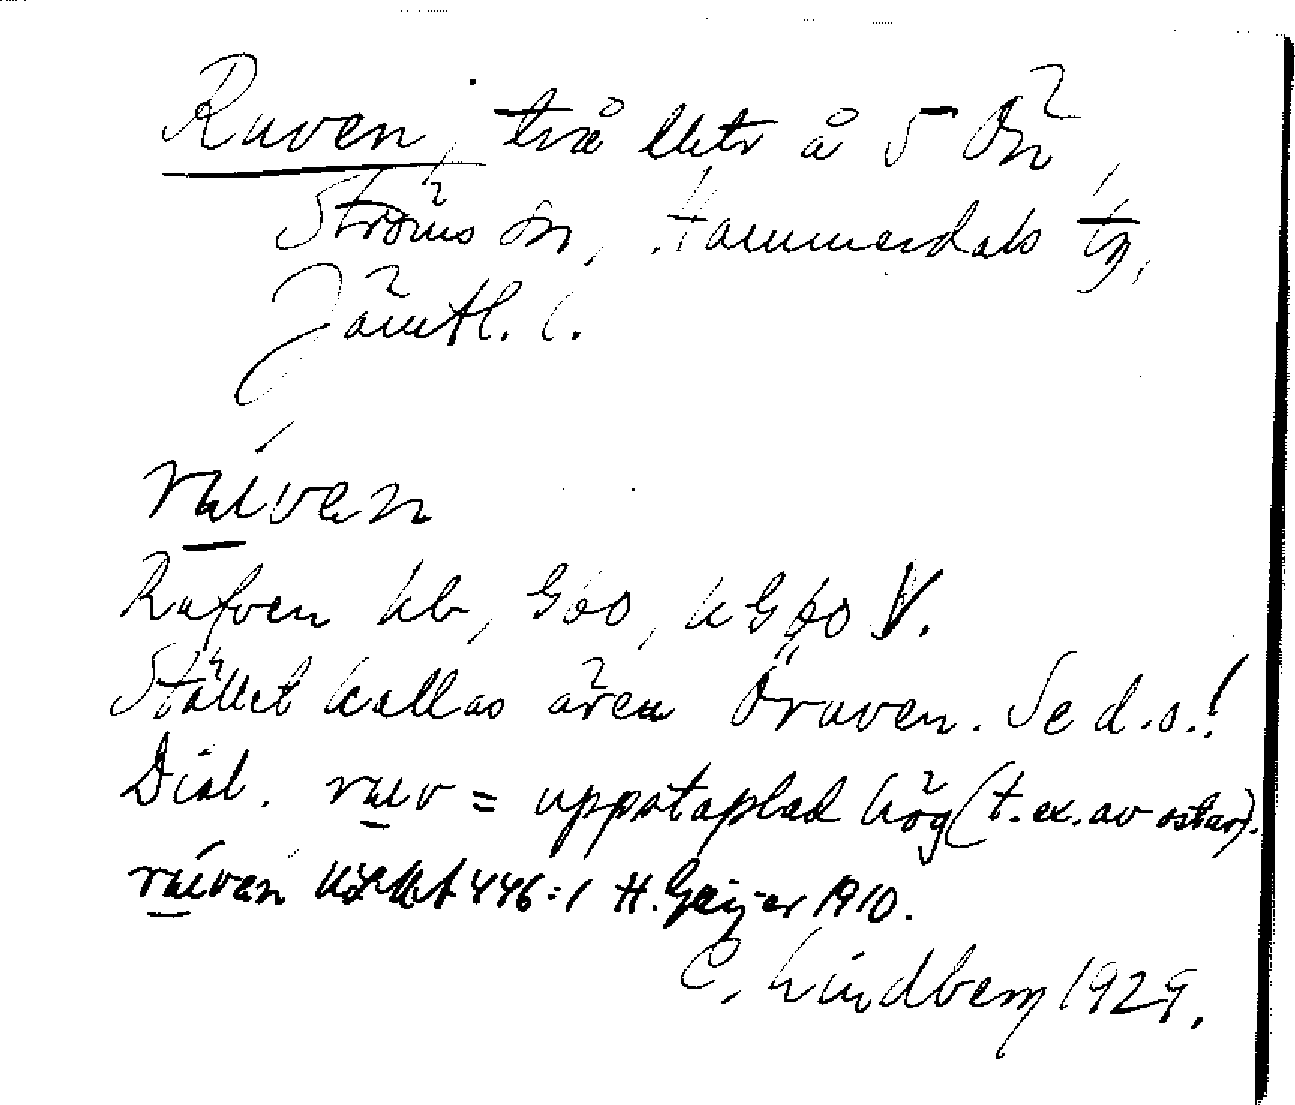 Raven, två lktr å 5 Ön,
Ströms sn, Hammerdals tg,
Jämtl. l.
raiven
Rafven kb, G60, kG60 V.
Stället kallas även Öraven. Se d.o.!
Dial. raiv = uppstaplad hög (t. ex. av ostar).
raiven 446:1 H. Geijer 1910.
C. Lindberg 1929.